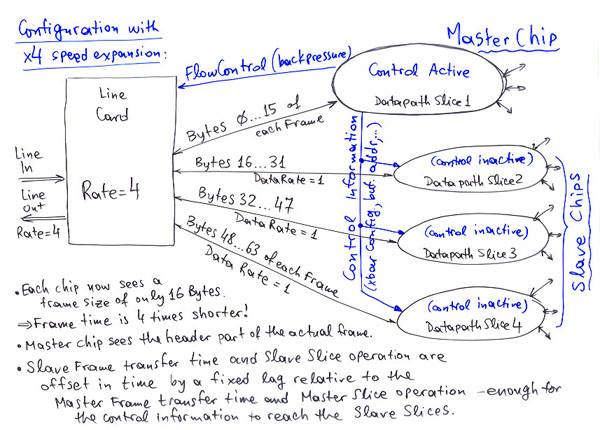 Configuration with
x4 speed expansion:
Master Chip
FlowControl (backpressure)
Control Active
Datapath Slice 1
Line
Card
Bytes 0...15 of
each Frame
Line
In
Line
out
Rate=4
Rate=4
Bytes 16...31
Data Rate=1
(control inactive)
Datapath Slice 2
Bytes 32...47
Data Rate=1
(control inactive)
Datapath Slice 3
Bytes 48...63 of each Frame
Data Rate=1
(control inactive)
Datapath Slice 4
Control Information
(xbar Config, buf. addr,...)
Slave Chips
• Each chip now sees a
frame size of only 16 Bytes.
⇒ Frame time is 4 times shorter!
• Master chip sees the header part of the actual frame.
• Slave Frame transfer time and Slave Slice operation are
offset in time by a fixed lag relative to the
Master Frame transfer time and Master Slice operation – enough for
the control information to reach the Slave Slices.